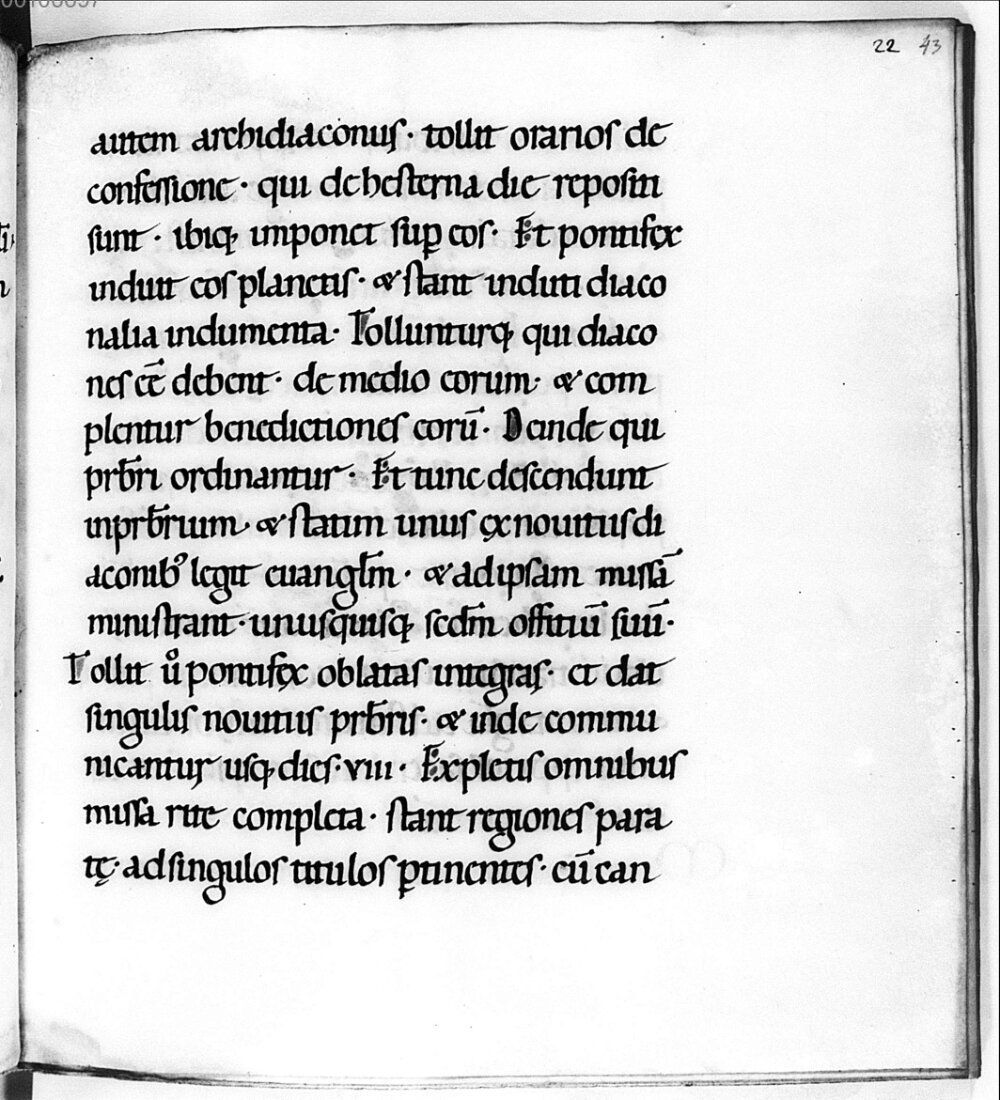 22 43
autem archidiaconus · tollit orarios de
confessione · qui de hesterna die repositi
sunt · ibiq; imponet sup̲ eos · Et pontifex
induit eos planetis · & stant induti diaco
nalia indumenta · Tollunturq; qui diaco
nes eē debent · de medio eorum · & com
plentur benedictiones eorū · Deinde qui
prb̄ri ordinantur · Et tunc descendunt
inprb̄rium · & statim unus ex nouitiis di
aconib᾽ legit euangl̄m · & ad ipsam missā
ministrant · unusquisq; scdm̄ offitiū suū ·
Tollit ů pontifex oblatas integras · et dat
singulis nouitiis prb̄ris · & inde commu
nicantur usq; dies · viii · Expletis omnibus
missa rite completa · stant regiones para
tę · ad singulos titulos p̲tinentes · cū can